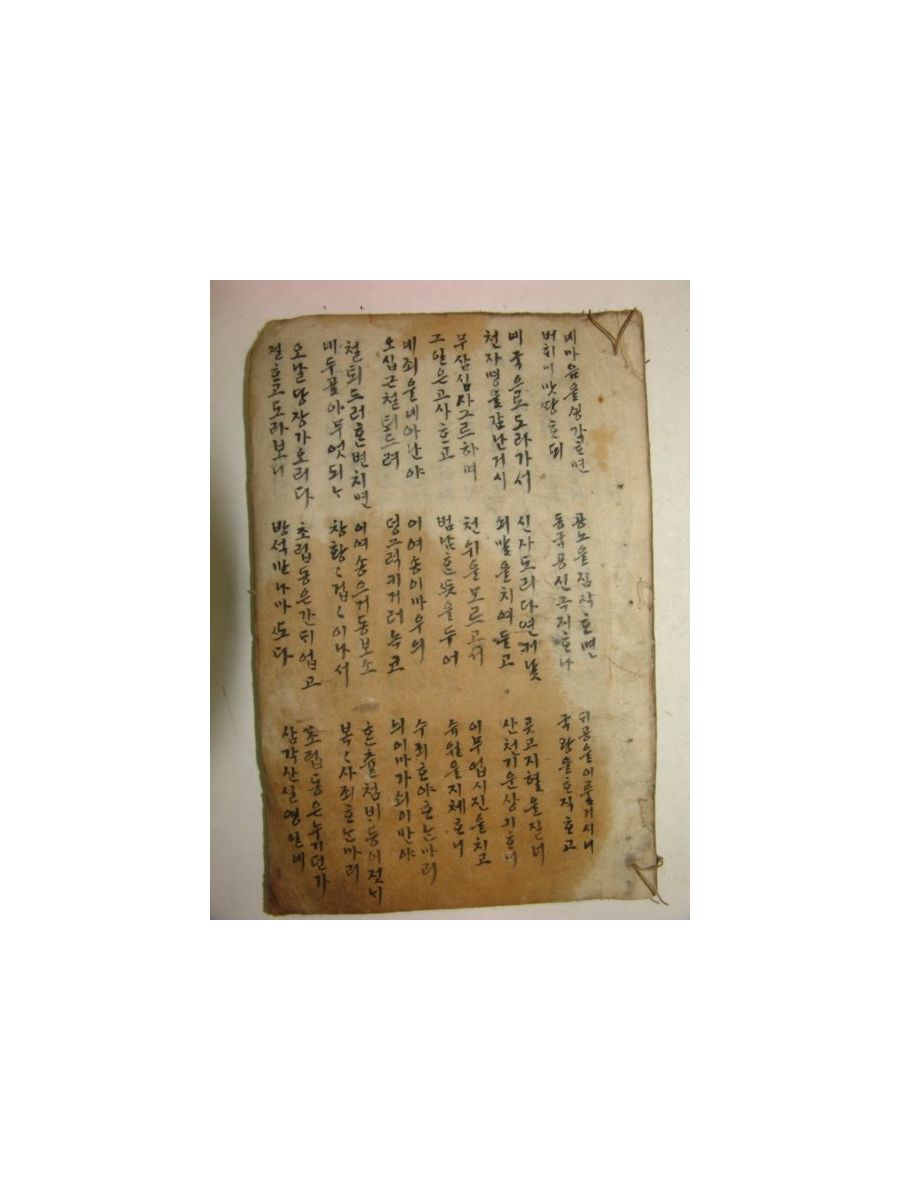 네마음을싱각ᄒᆞ면
버히미맛당ᄒᆞ되
공노을짐작ᄒᆞ면
동국용신극지ᄒᆞ나
ᄃᆡ공을이루거시니
국량을ᄒᆞ직ᄒᆞ고
비국으로도라가서
천자명을잠난거시
신자도리다연커날
쇠맟을치여들고
곳고지혈을잔너
산천기운상기ᄒᆞ니
무삼심사그르하며
그안은고사ᄒᆞ고
천위을모르고서
범남ᄒᆞᆫᄯᅳᆺ을두어
이무업시진을치고
듀월을지체ᄒᆞ니
네죄을네아난야
오십근철퇴드려
이여송이마우의
덩그럭키거러녹코
수죄ᄒᆞ야ᄒᆞᄂᆞᆫ마리
늬이마가쇠이반야
철퇴드러ᄒᆞᆫ변치면
네두골아무엇되노
이여송으거동보소
창황〻겁〻이나서
혼츌첨비등이젓늬
복〻사죄ᄒᆞᄂᆞᆫ마리
오날당장가오리다
절ᄒᆞ고도라보니
초립동은간ᄃᆡ업고
방석만나마ᄯᅩ다
초립동은누기던가
삼각산실영일네